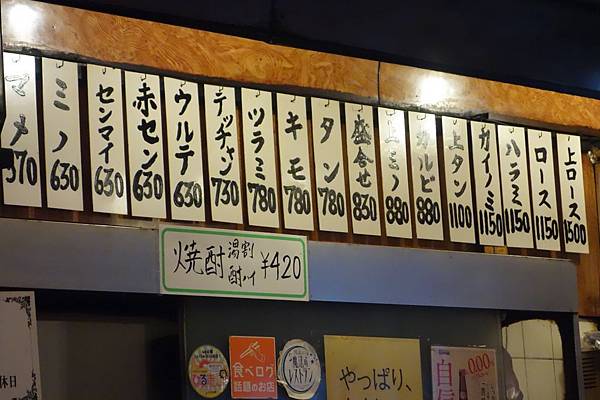 マメ 570
ミノ 630
センマイ 630
赤セン 630
ウルテ 630
テヂャン 730
ツラミ 780
キモ 780
タン 780
盛合せ 830
上ミノ 880
カルビ 880
上タン 1100
カイノミ 1150
ハラミ 1150
ロース 1150
上ロース 1500
焼酎 湯割 酎ハイ ¥420
食べログ
話題のお店
レストラン
やっぱり、
0.00
自信
休日